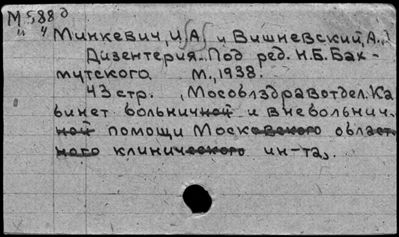 М 588 д
" "
Минкевич, И.А. и Вишневский, А..
Дизентерия. Под ред. Н.Б. Бах-
мутского. М., 1938.
43 стр. , Мособлздравотдел. Ка
бинет больничной и внебольнич
ной помощи Московского област
ного клинического ин-та,.